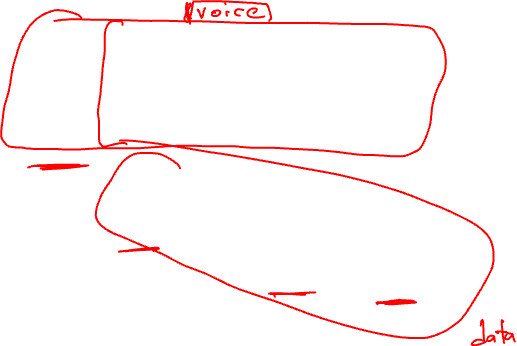 voice
data